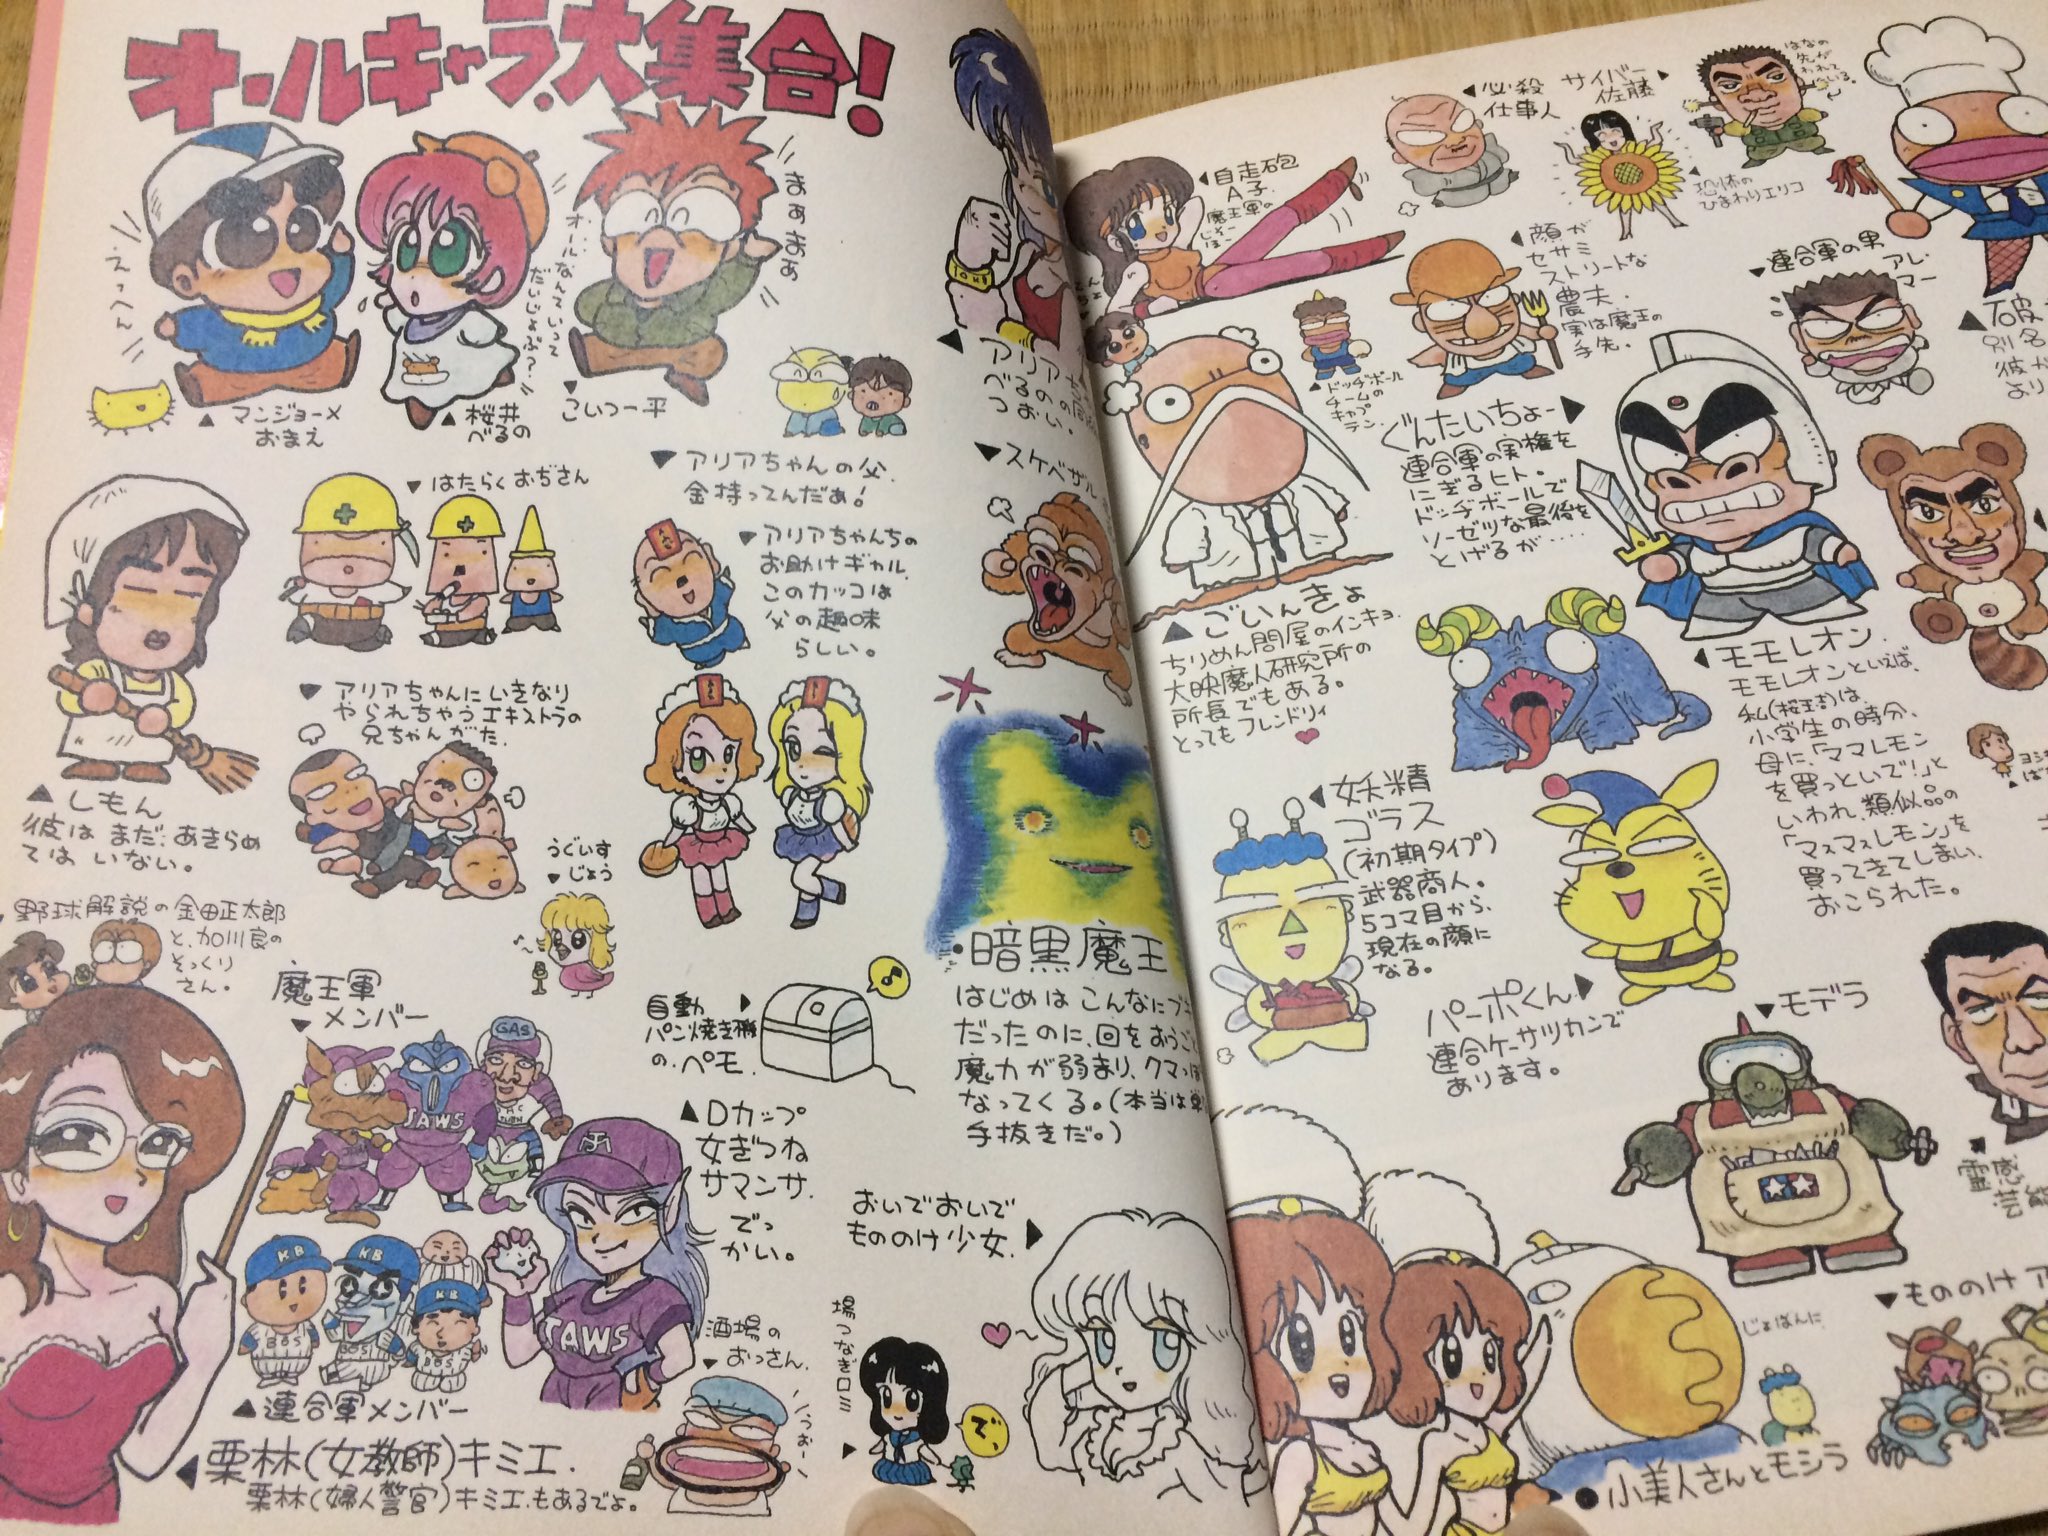 オールキャラ大集合!
えっへん
マンジョーメ
おまえ
オール…なんていって
だいじょぶ?…
桜井
べるの
まぁまぁ
こいつ一平
アリア
べるのの
つおい。
スケベザル
しもん
彼はまだ、あきらめ
てはいない。
はたらくおぢさん
アリアちゃんの父.
金持ってんだぁ!
アリアちゃんちの
お助けギャル.
このカッコは
父の趣味
らしい。
アリアちゃんにいきなり
やられちゃうエキストラの
兄ちゃんがた.
うぐいす
じょう
野球解説の金田正太郎
と、加川良の
そっくり
さん。
魔王軍
メンバー
GAS
JAWS
JAWS
KB
KB
KB
BBS
BBS
BBS
連合軍メンバー
栗林(女教師)キミエ.
栗林(婦人警官)キミエ.もあるでよ。
自動
パン焼き機
の.ペモ.
Dカップ
女ぎつね
サマンサ.
でっ
かい。
酒場の
おっさん.
暗黒魔王
はじめは こんなにブキ
だったのに、回をおうごと
魔力が弱まり、クマっぽ
なってくる。(本当は単
手抜きだ。)
おいでおいで
もののけ少女.
場つなぎロミ
で、
自走砲
A子.
魔王軍の
必殺
仕事人
サイバー
佐藤
はなの
先が
われて
いる。
恐怖の
ひまわりエリコ
顔が
セサミ
ストリートな
農夫.
実は魔王の
手先。
ドッヂボール
チームの
キャプ
テン.
連合軍の男
アレ・
マー
別名
彼が
より
ぐんたいちょー
連合軍の実権を
にぎるヒト.
ドッヂボールで
ソーゼツな最後を
とげるが‥‥
ごいんきょ
ちりめん問屋のインキョ.
大映魔人研究所の
所長でもある。
とってもフレンドリィ
モモレオン.
モモレオンといえば、
私(桜玉吉)は
小学生の時分、
母に、「ママレモン
を買っといで!」と
いわれ、類似品の
「マスマスレモン」を
買ってきてしまい、
おこられた。
妖精
ゴラス
(初期タイプ)
武器商人.
5コマ目から、
現在の顔に
なる。
パーポくん
連合ケーサツカンで
あります。
モデラ
じょばんに
もののけ ア
小美人さんとモシラ